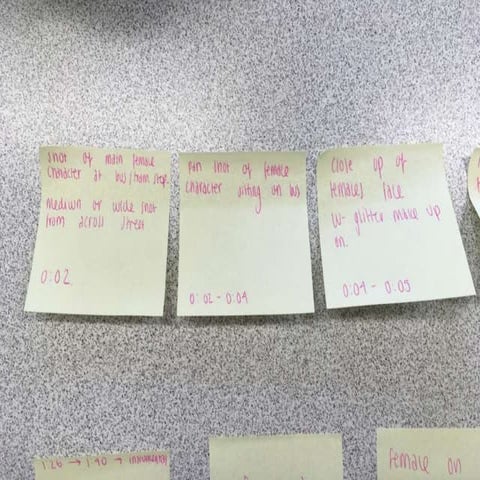 Shot of main female
character at bus/tram stop.
Medium or wide shot
from across street
0:02
Pan shot of female
character sitting on bus
0:02 - 0:04
Close up of
females face
w- glitter make up
on.
0:04 - 0:05
1:26 → 1:40 → instrumental
Female on